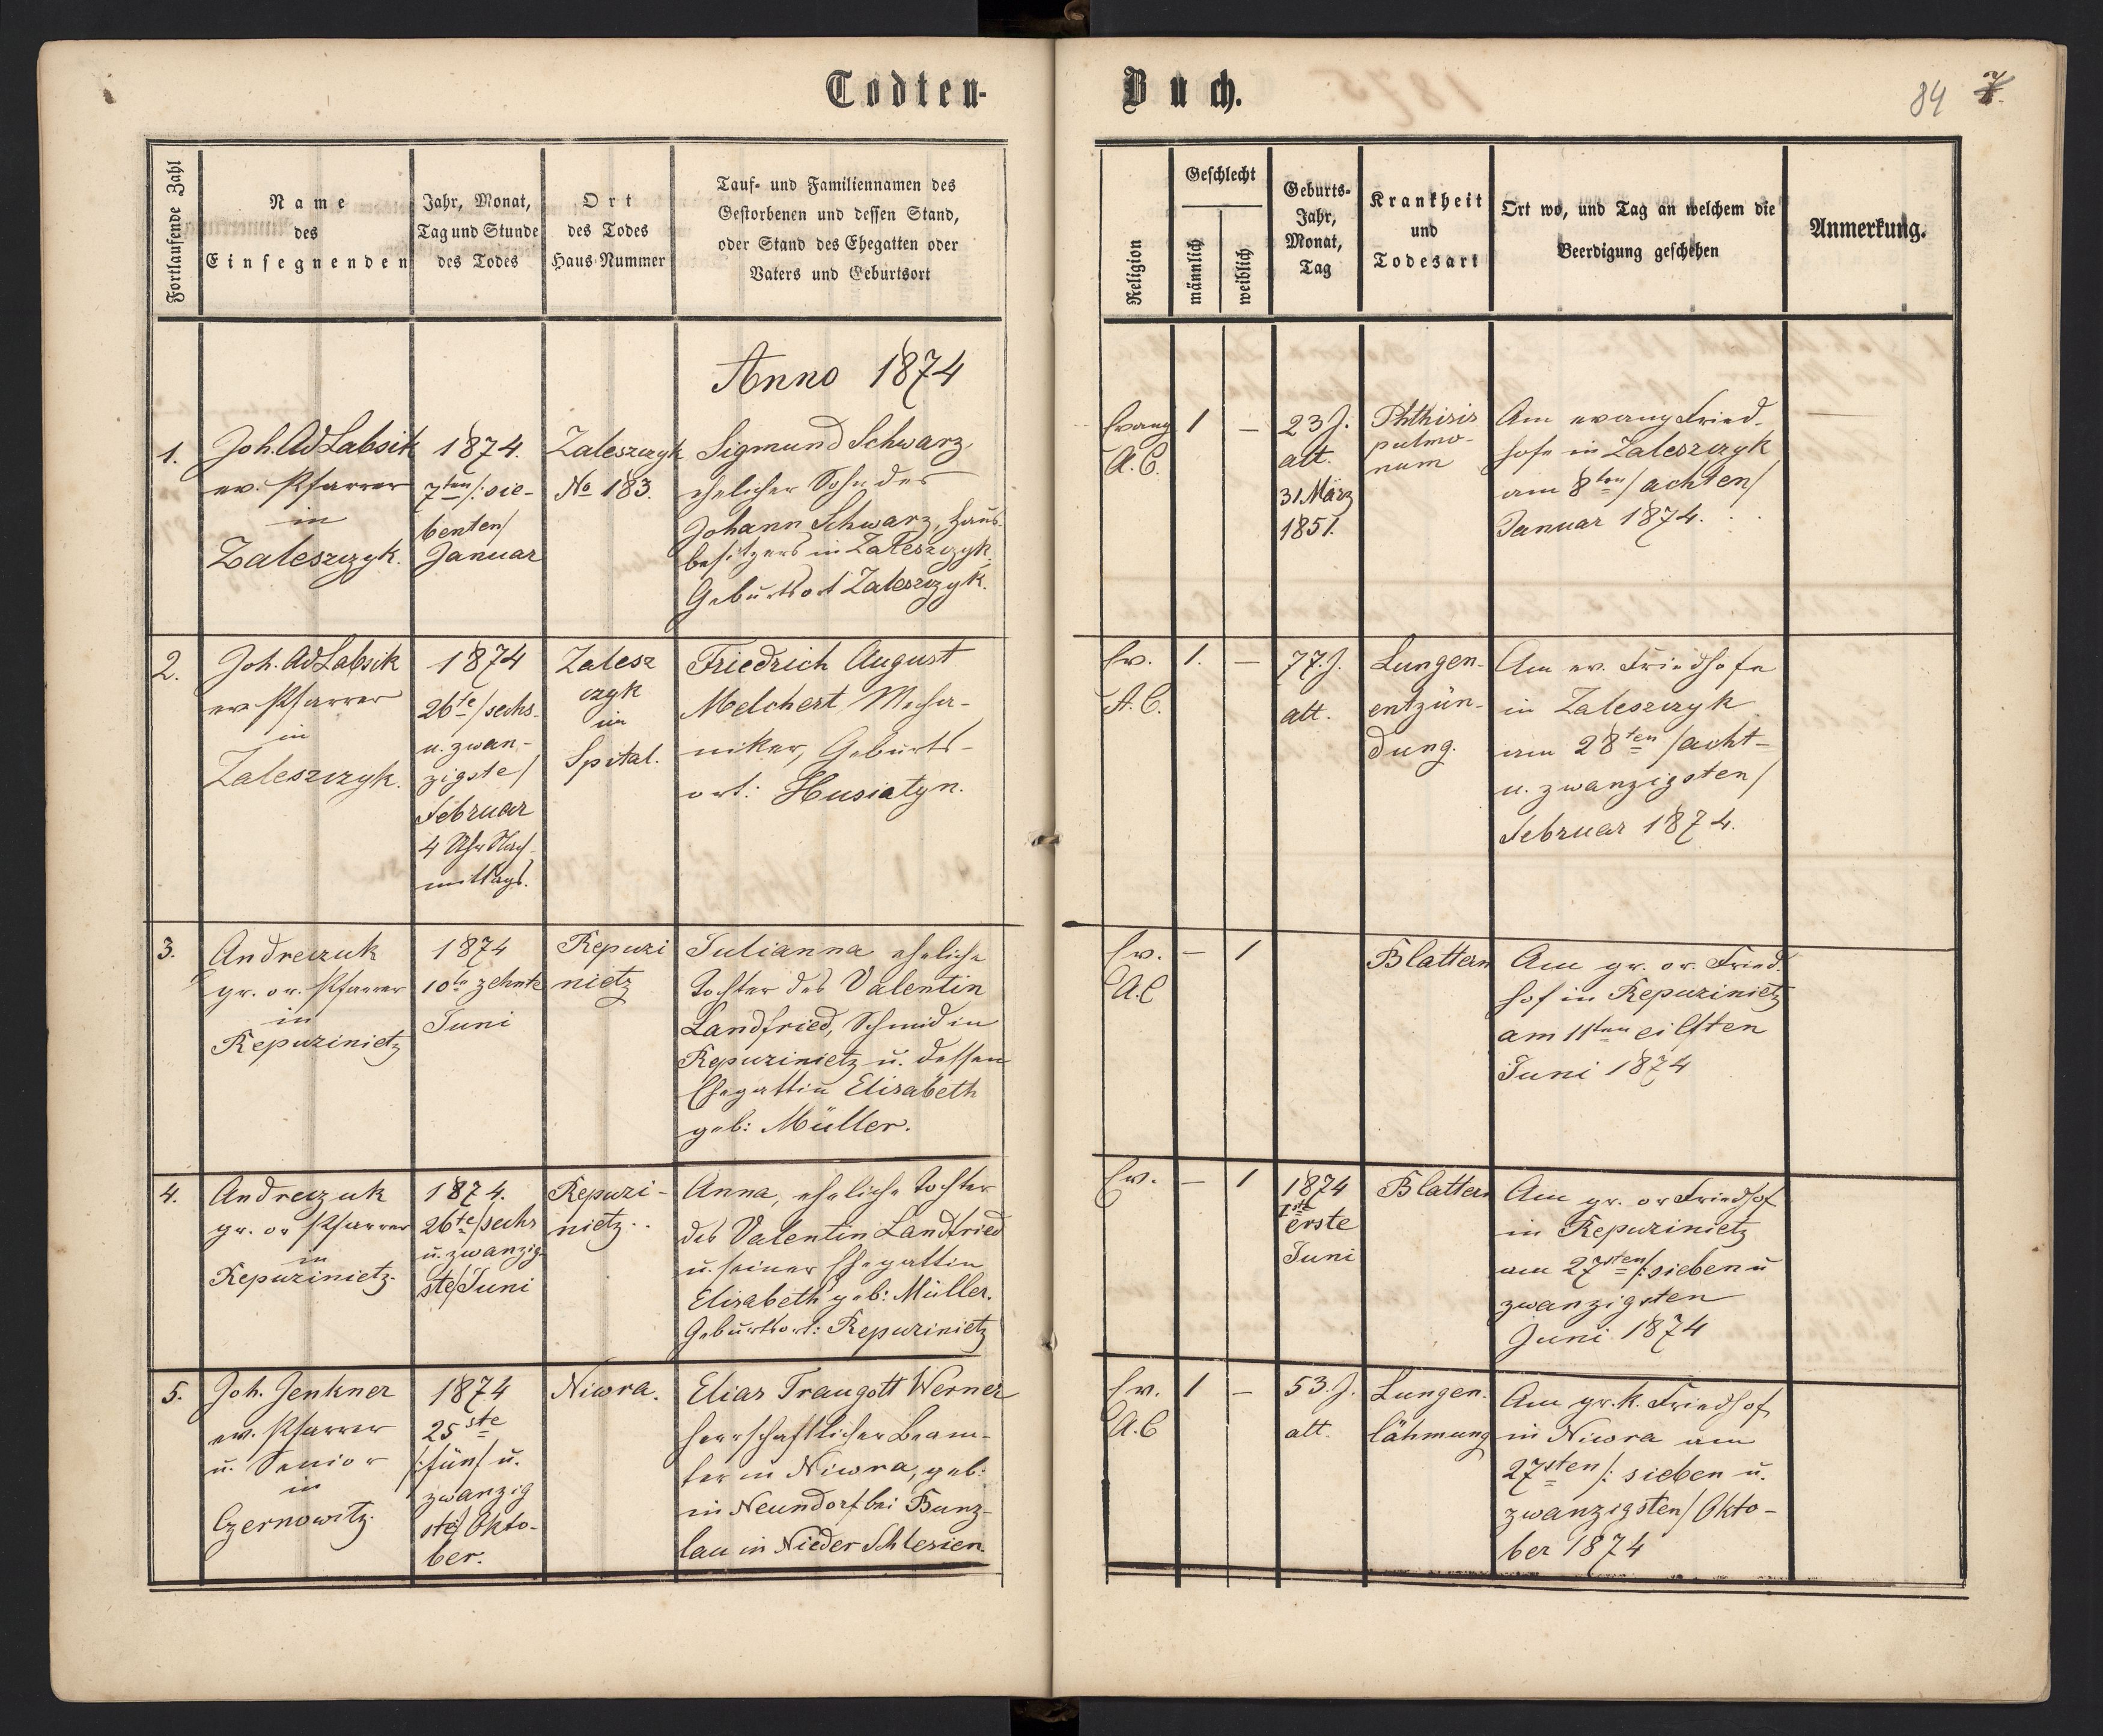 Todten-
Buch.
84
7.
Fortlaufende Zahl
Name
des
Einsegnenden
Jahr, Monat,
Tag und Stunde
des Todes
Ort
des Todes
Haus-Nummer
Tauf- und Familiennamen des
Gestorbenen und dessen Stand,
oder Stand des Ehegatten oder
Vaters und Geburtsort
Religion
Geschlecht
männlich
weiblich
Geburts-
Jahr,
Monat,
Tag
Krankheit
und
Todesart
Ort wo, und Tag an welchem die
Beerdigung geschehen
Anmerkung.
Anno 1874
1.
Joh. Ad Labsik
ev. Pfarrer
in
Zaleszczyk.
1874.
7ten/: sie-
benten/
Januar
Zaleszczyk
No 183.
Sigmund Schwarz
ehelicher Sohn des
Johann Schwarz, Haus-
besitzers in Zaleszczyk.
Geburtsort Zaleszczyk.
Evang
A.C.
1
—
23 J.
alt.
31 März
1851.
Phthisis
pulmo-
num
Am evang Fried-
hofe in Zaleszczyk
am 8ten/ achten/
Januar 1874.
2.
Joh. Ad Labsik
ev Pfarrer
in
Zaleszczyk.
1874
26te/sechs-
u. zwan-
zigste/
Februar
4 Uhr Nach-
mittags.
Zalesz
czyk
im
Spital.
Friedrich August
Melchert, Mecha-
niker, Geburts-
ort: Husiatyn.
Ev.
A.C.
1.
—
77. J.
alt.
Lungen-
entzün-
dung.
Am ev. Friedhofe
in Zaleszczyk
am 28ten /acht-
u. zwanzigsten/
Februar 1874.
3.
Andreiczuk
gr. or. Pfarrer
in
Repuzinietz
1874
10te zehnte
Juni
Repuzi
nietz
Julianna eheliche
Tochter des Valentin
Landfried, Schmid in
Repuzinietz u. dessen
Ehegattin Elisabeth
geb: Müller.
Ev.
A.C
—
1
Blattern
Am gr. or. Fried-
hof in Repuzinietz
am 11ten eilften
Juni 1874
4.
Andreiczuk
gr. or Pfarrer
in
Repuzinietz.
1874.
26te/sechs
u. zwanzig-
ste/Juni
Repuzi-
nietz..
Anna, eheliche Tochter
des Valentin Landfried
u. seiner Ehegattin
Elisabeth geb: Müller.
Geburtsort: Repuzinietz
Ev.
—
1
1874
1ste
erste
Juni
Blattern
Am gr. or Friedhof
in Repuzinietz
am 27sten/: sieben u
zwanzigsten
Juni 1874
5.
Joh. Jenkner
ev. Pfarrer
u. Senior
in
Czernowitz.
1874
25ste
/:fünf u.
zwanzig
ste/ Okto-
ber.
Niwra.
Elias Traugott Werner
herrschaftlicher Beam-
ter in Niwra, geb:
in Neundorf bei Bunz-
lau in Nieder Schlesien.
Ev.
A.C
1
—
53. J.
alt.
Lungen-
lähmung
Am gr. k. Friedhof
in Niwra am
27sten/: sieben u.
zwanzigsten/ Okto-
ber 1874